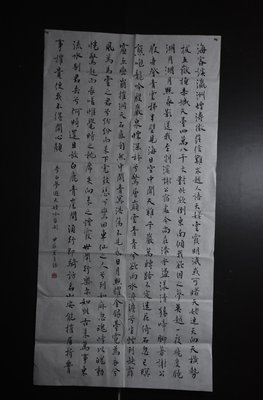 海客談瀛洲煙濤微茫信難求越人語天姥雲霞明滅或可睹天姥連天向天橫勢
拔五嶽掩赤城天台四萬八千丈對此欲倒東南傾我欲因之夢吳越一夜飛度鏡
湖月湖月照我影送我至剡溪謝公宿處今尚在淥水蕩漾清猿啼腳著謝公
屐身登青雲梯半壁見海日空中聞天雞千巖萬轉路不定迷花倚石忽已暝
熊咆龍吟殷巖泉慄深林兮驚層巔雲青青兮欲雨水澹澹兮生煙列缺霹
靂丘巒崩摧洞天石扉訇然中開青冥浩蕩不見底日月照耀金銀臺霓為衣兮
風為馬雲之君兮紛紛而來下虎鼓瑟兮鸞回車仙之人兮列如麻忽魂悸以魄動
恍驚起而長嗟惟覺時之枕席失向來之煙霞世間行樂亦如此古來萬事東
流水別君去兮何時還且放白鹿青崖間須行即騎訪名山安能摧眉折腰
事權貴使我不得開心顏 李白夢遊天姥吟留別